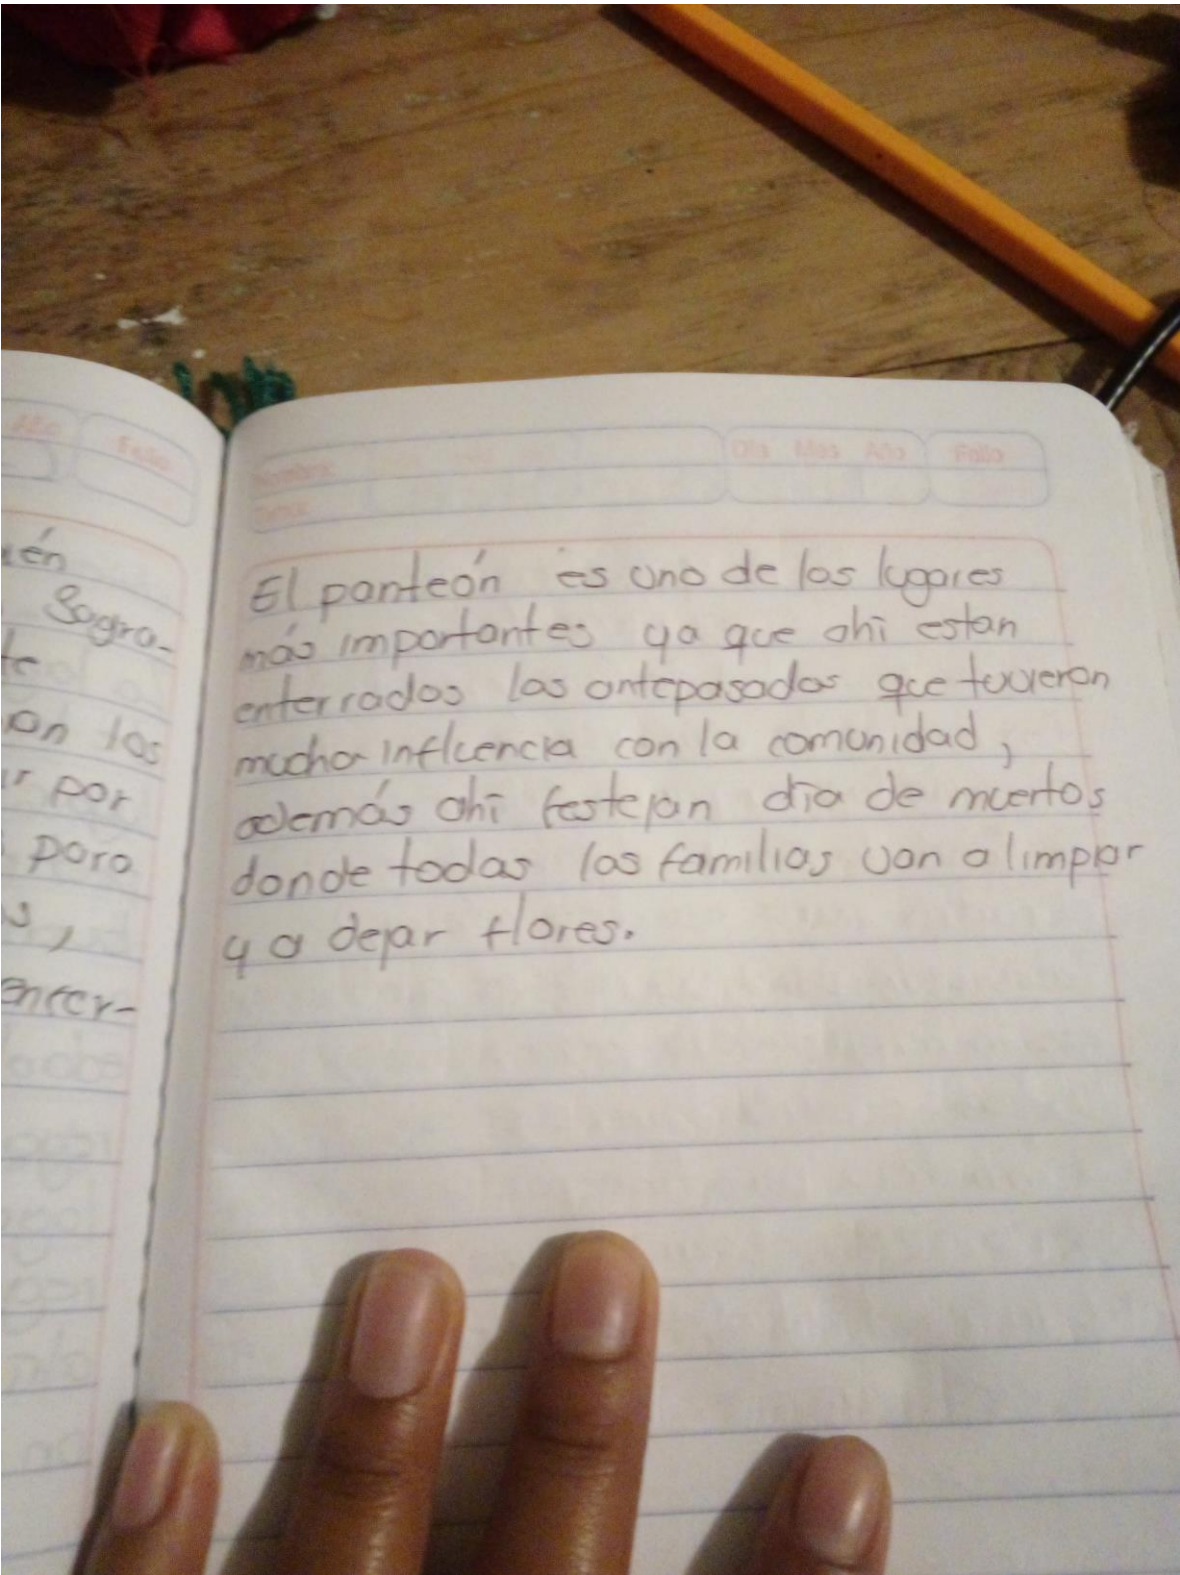 Año Folio
ién
Sagra-
te
on los
ir por
para
s,
enter-
Nombre
Día Mes Año Folio
Tema
El panteón es uno de los lugares
más importantes ya que ahi estan
enterrados los antepasados que tuvieron
mucha influencia con la comunidad,
además ahi festejan dia de muertos
donde todas las familias van a limpiar
y a dejar flores.